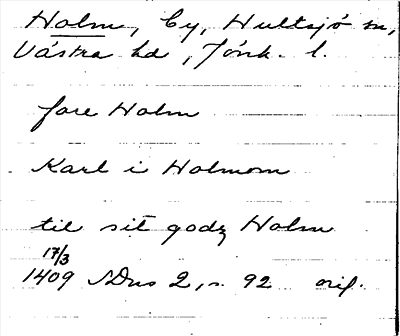 Holm, by, Hultsjö sn,
Västra hd, Jönk. l.
fore Holm
Karl i Holmom
til sit godz Holm
17/3
1409 SDns 2, s. 92 orig.